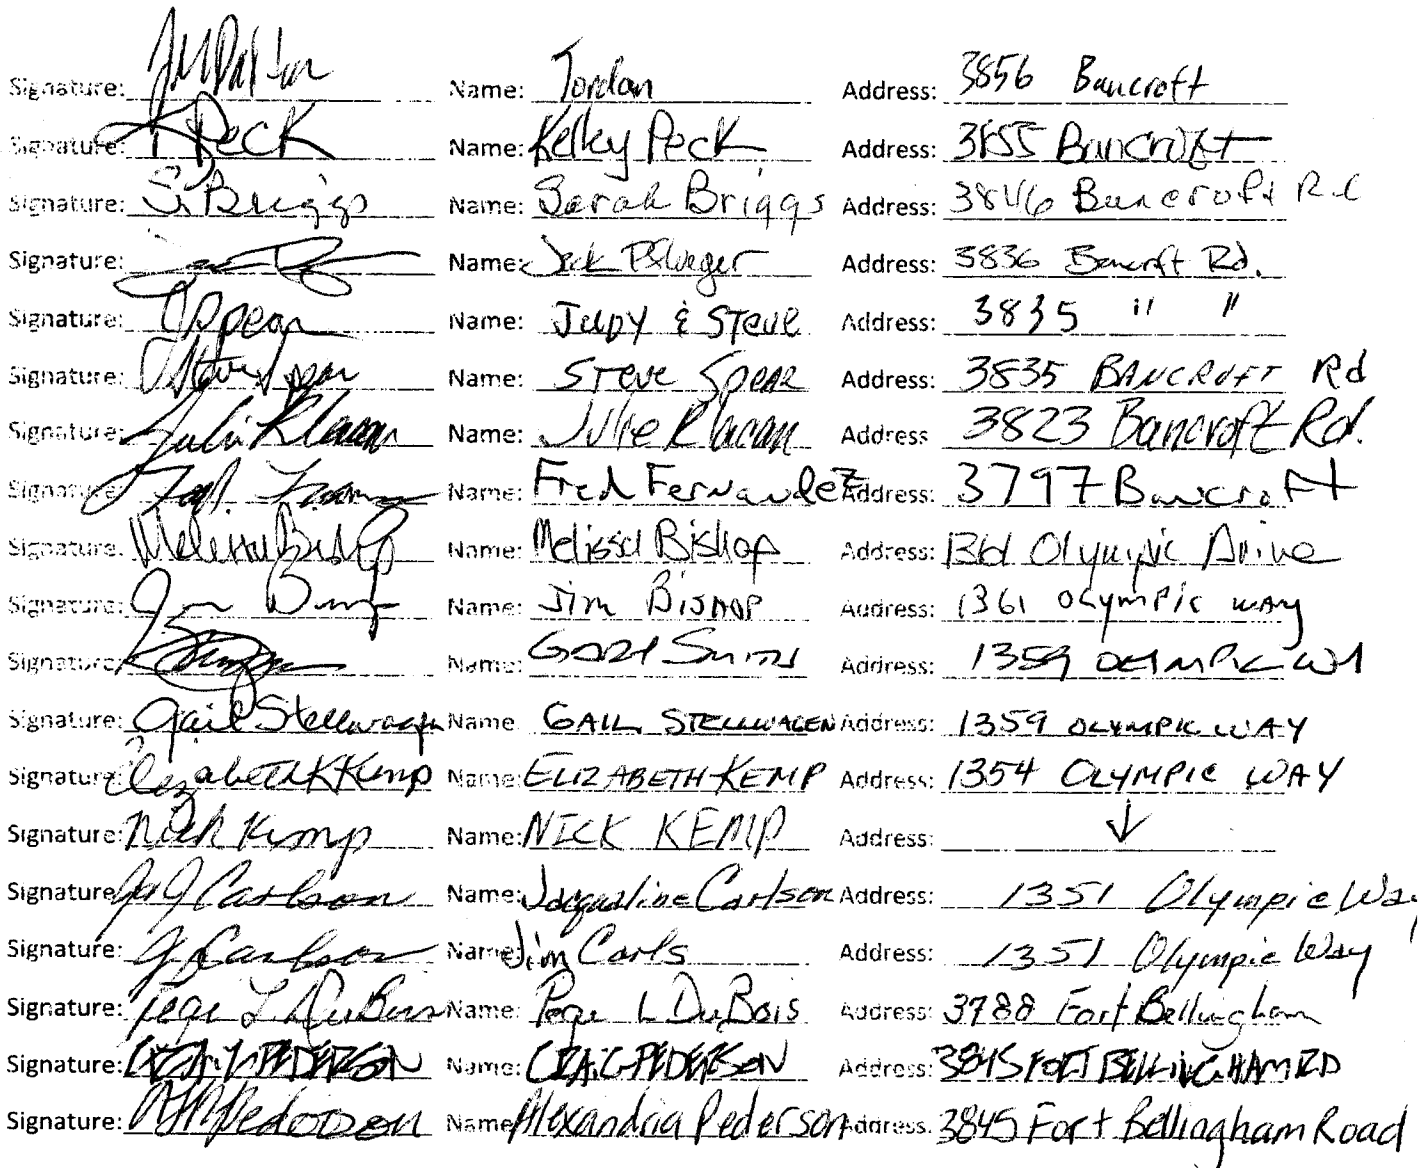 Signature: Name: Jordan Address: 3856 Bancroft
Signature: Peck Name: Kelley Peck Address: 3855 Bancroft
Signature: S. Briggs Name: Sarah Briggs Address: 3846 Bancroft Rd
Signature: Name: Jack Pflueger Address: 3836 Bancroft Rd.
Signature: JSpear Name: Judy & Steve Address: 3835 " "
Signature: Steve Spear Name: Steve Spear Address: 3835 BANCROFT Rd
Signature: Julie Klacan Name: Julie Klacan Address 3823 Bancroft Rd.
Signature: Name: Fred Fernandez Address: 3797 Bancroft
Signature. Melissa Bishop Name: Melissa Bishop Address: 1361 Olympic Drive
Signature: Name: Jim Bishop Address: 1361 Olympic way
Signature: Name: Smith Address: 1359 OLYMPIC WY
Signature: Gail Stellwagen Name GAIL STELLWAGEN Address: 1359 OLYMPIC WAY
Signature: Elizabeth K Kemp Name: ELIZABETH KEMP Address: 1354 OLYMPIC WAY
Signature: Nick Kemp Name: NICK KEMP Address: ↓
Signature: Carlson Name: Jacqueline Carlson Address: 1351 Olympic Way
Signature: J Carlson Name: Jim Carls Address: 1351 Olympic Way
Signature: Pege L DuBois Name: Pege L DuBois Address: 3788 Fort Bellingham
Signature: CRAIG PEDERSON Name: CRAIG PEDERSON Address: 3845 FORT BELLINGHAM RD
Signature: Pederson Name: Alexandria Pederson Address. 3845 Fort Bellingham Road